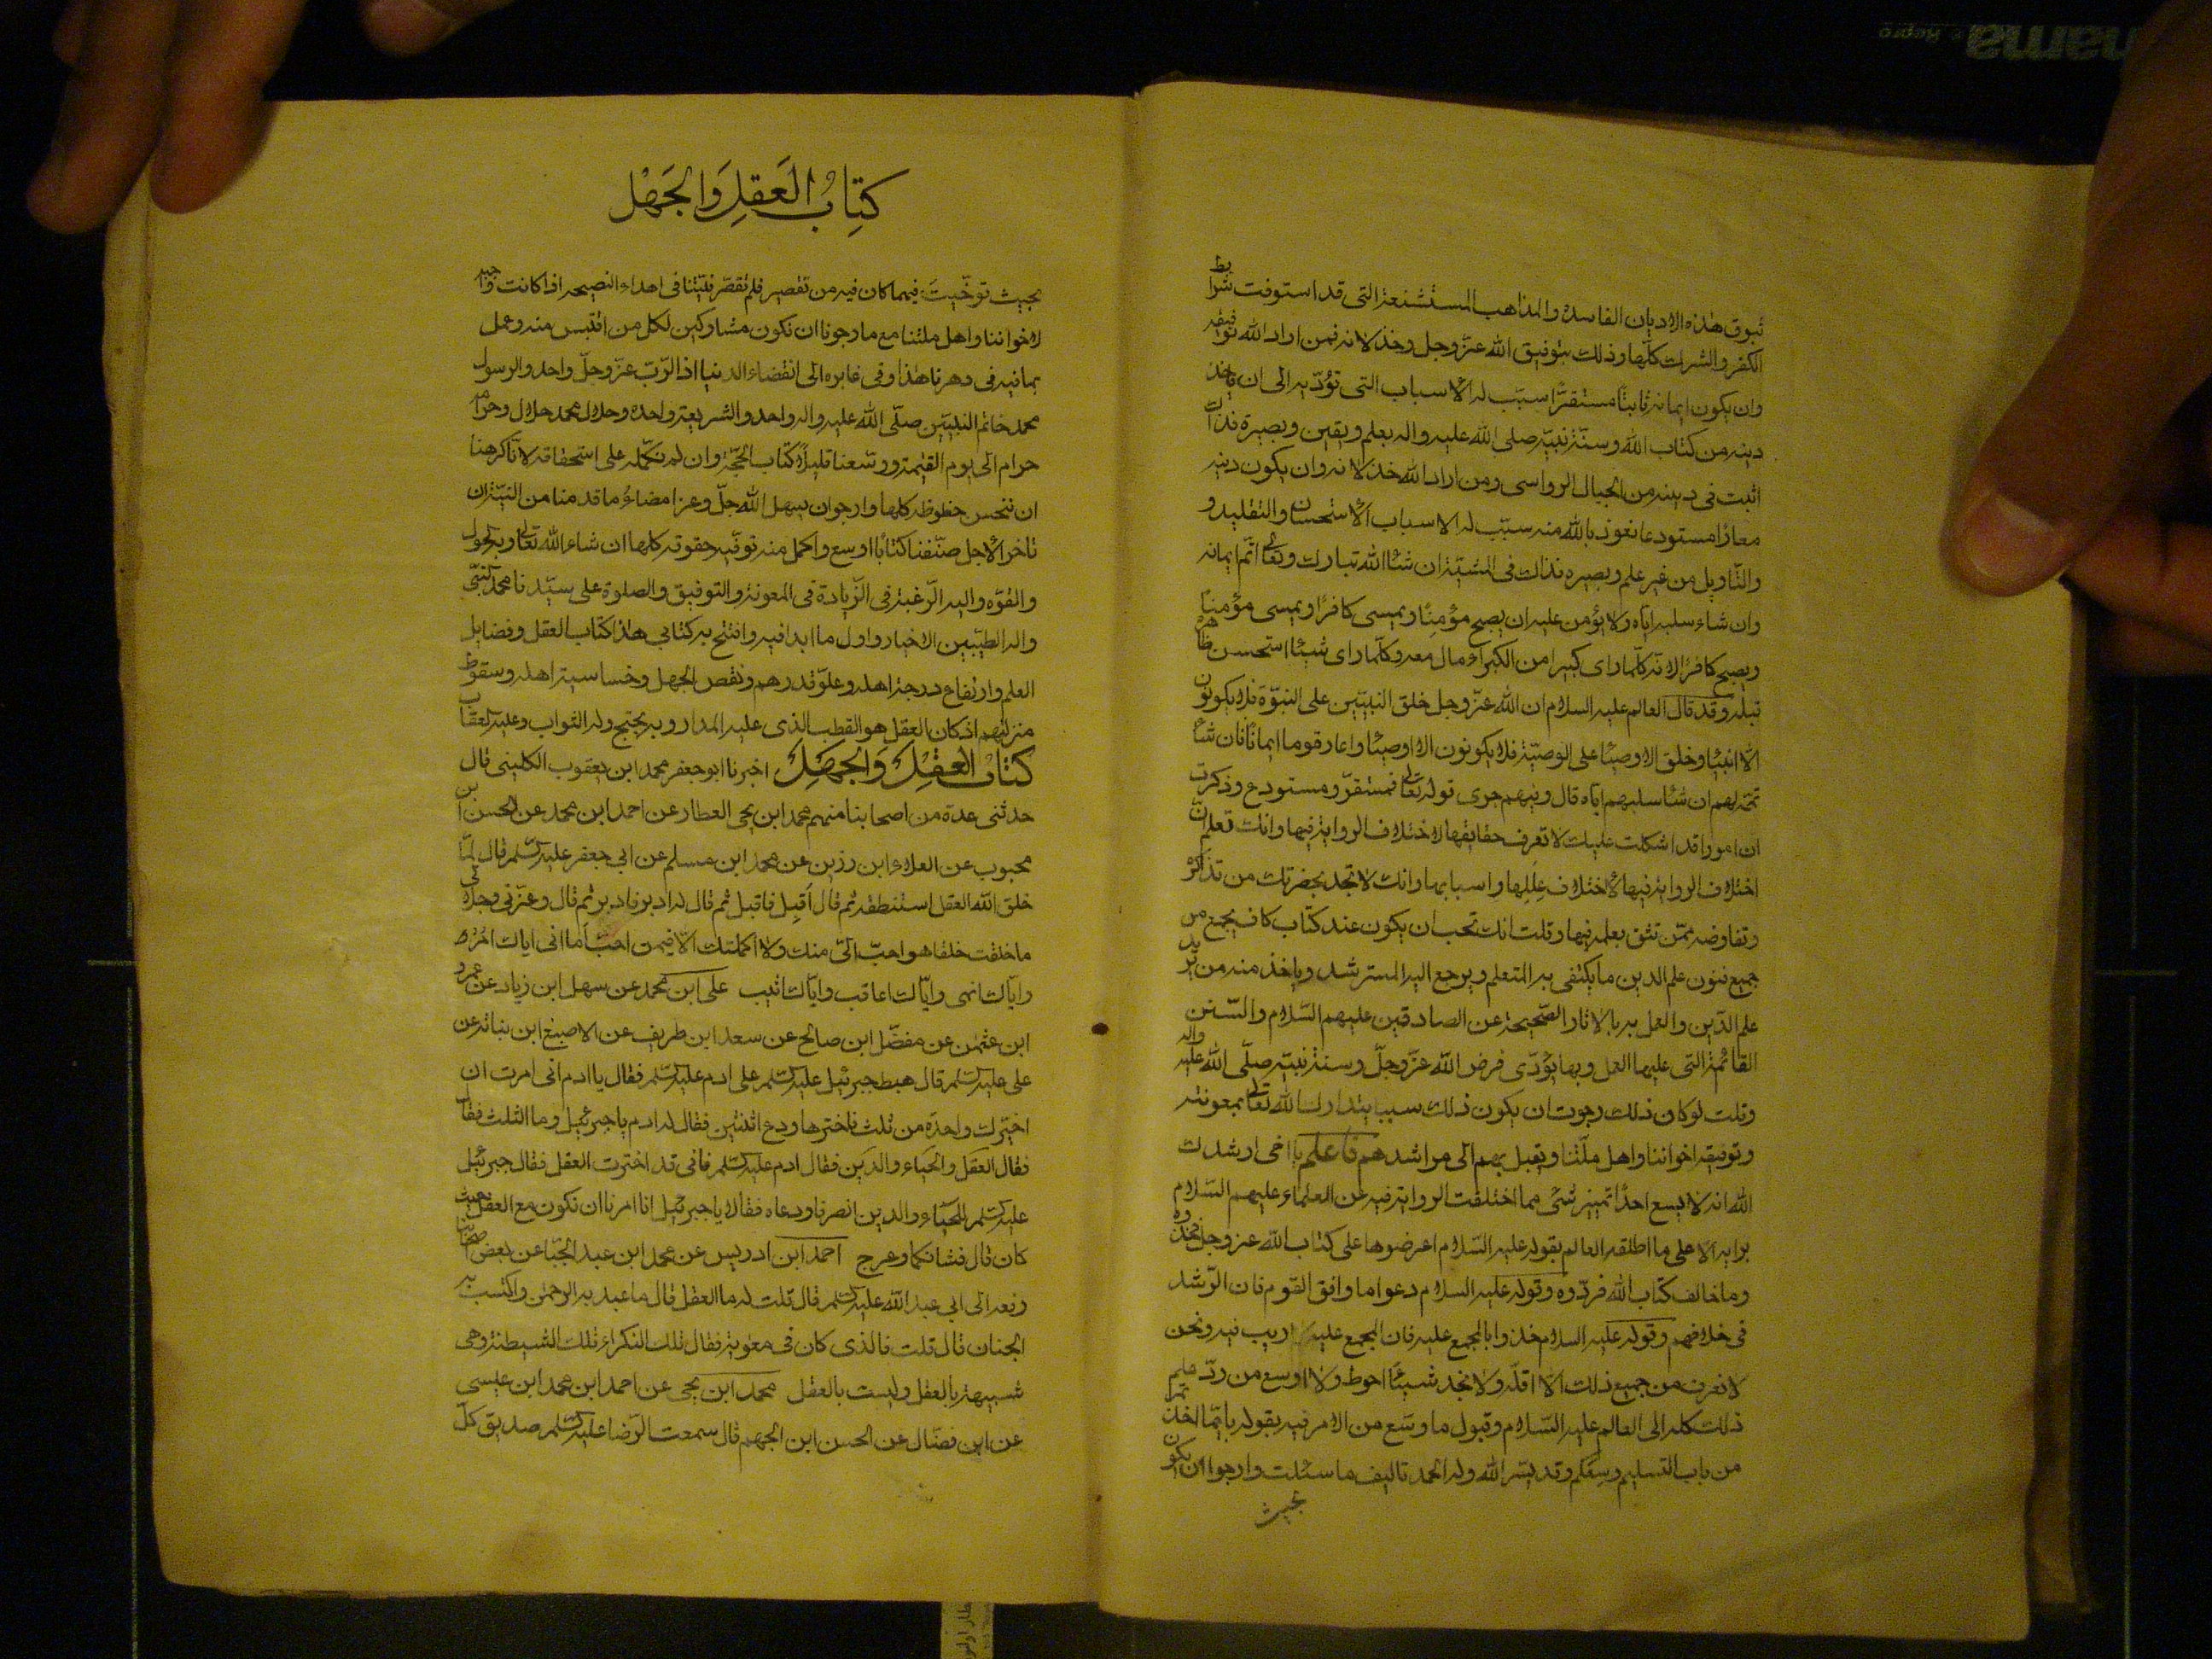 ثبوق هذه الاديان الفاسده والمذاهب المستشنعة التى قد استوفت شرايط
الكفر والشرك كلها وذلك بتوفيق الله عزّ وجل وخذلانه فمن اراد الله توفيقه
وان يكون ايمانه ثابتًا مستقرًّا سبّب له الاسباب التى تؤدّيه الى ان ياخذ
دينه من كتاب الله وسنّة نبيّه صلى الله عليه واله بعلم ويقين وبصيرة فذاك
اثبت فى دينه من الجبال الرواسى ومن اراد الله خذلانه وان يكون دينه
معارًا مستودعا نعوذ بالله منه سبّب له الاسباب الاستحسان والتقليد و
والتّاويل من غير علم وبصيره فذاك فى المشيّة ان شاالله تبارك وتعالى اتمّ ايمانه
وان شاء سلبه اياه ولا يؤمن عليه ان يصبح مؤمنًا ويمسى كافرًا ويمسى مؤمنًا
ويصبح كافرًا لانّه كلّما راى كبيرا من الكبراء مال معه وكلّما راى شيئا استحسن ظاهره
قبله وقد قال العالم عليه السلام ان الله عزّ وجل خلق النبيّين على النبوّة فلا يكونون
الا انبيا وخلق الاوصيا على الوصيّة فلا يكونون الا اوصيا واعار قوما ايمانًا فان شا
تمّه لهم ان شا سلبهم اياه قال وفيهم جرى قوله تعالى فمستقرّ ومستودع وذكرت
ان امورا قد اشكلت عليك لا تعرف حقايقها لاختلاف الرواية فيها وانك تعلم انّ
اختلاف الرواية فيها لاختلاف عللها واسبابها وانك لا تجد بحضرتك من تذاكره
وتفاوضه ممّن تثق بعلمه فيها وقلت انك تحب ان يكون عند كتاب كاف يجمع من
جميع فنون علم الدين ما يكتفى به المتعلم ويرجع اليه المسترشد وياخذ منه من يريد
علم الدّين والعمل به بالاثار الصّحيحة عن الصادقين عليهم السّلام والسّنن
القائمة التى عليها العمل وبها يؤدّى فرض الله عزّ وجلّ وسنة نبيّه صلّى الله عليه واله
وقلت لو كان ذلك رجوت ان يكون ذلك سببا يتدارك الله تعالى بمعونته
وتوفيقه اخواننا واهل ملّتنا ويقبل بهم الى مراشدهم فاعلم يا اخى ارشدك
الله انه لا يسع احدًا تمييز شئ مما اختلفت الرواية فيه عن العلماء عليهم السّلام
برايه الا على ما اطلقه العالم بقوله عليه السّلام اعرضوها على كتاب الله عز وجل فخذوه
وما خالف كتاب الله فردّوه وقوله عليه السلام دعوا ما وافق القوم فان الرّشد
فى خلافهم وقوله عليه السلام خذوا بالمجمع عليه فان المجمع عليه لا ريب فيه ونحن
لا نعرف من جميع ذلك الا اقلّه ولا نجد شيئًا احوط ولا اوسع من ردّ علم
ذلك كله الى العالم عليه السّلام وقبول ما وسّع من الامر فيه بقوله بايّما اخذتم
من باب التسليم وسعكم وقد يسّر الله وله الحمد تاليف ما سئلت وارجوا ان يكون
بحيث
كِتَابُ العَقلِ وَالجَهْلِ
بحيث توخّيتَ فيهما كان فيه من تقصير فلم تقصّر نيّتنا فى اهداء النصيحه اذ كانت واجبه
لاخواننا واهل ملتنا مع ما رجونا ان نكون مشاركين لكل من اقتبس منه وعمل
بما فيه فى دهرنا هذا وفى غابره الى انقضاء الدنيا اذ الرّبّ عزّ وجلّ واحد والرسول
محمد خاتم النبيّين صلّى الله عليه واله واحد والشريعة واحده وحلال محمد حلال وحرامه
حرام الى يوم القيمة ووسّعنا قليلًا كتاب الحجّة وان لم نكمّله على استحقاقه لانّا كرهنا
ان نبخس حظوظه كلها وارجوا ان يسهل الله جلّ وعز امضاءُ ما قدمنا من النيّة ان
تاخر الاجل صنّفنا كتابًا اوسع واكمل منه نوفّيه حقوقه كلها ان شاء الله تعالى وبه الحول
والقوّه واليه الرّغبة فى الزّيادة فى المعونة والتوفيق والصلوة على سيّدنا محمد النبىّ
واله الطيّبين الاخيار واول ما ابدا فيه وافتتح به كتابى هذا كتاب العقل وفضايل
العلم وارتفاع درجة اهله وعلوّ قدرهم ونقص الجهل وخساسة اهله وسقوط
منزلتهم اذ كان العقل هو القطب الذى عليه المدار وبه يحتج وله الثواب وعليه العقاب
كتابُ العقلِ وَالجَهلِ اخبرنا ابو جعفر محمد ابن يعقوب الكلينى قال
حدثنى عدة من اصحابنا منهم محمد ابن يحيى العطار عن احمد ابن محمد عن الحسن ابن
محبوب عن العلاء ابن رزين عن محمد ابن مسلم عن ابى جعفر عليه السلم قال لمّا
خلق الله العقل استنطقه ثم قال اَقبِل فاقبل ثم قال له ادبر فادبر ثم قال وعزّتى وجلالى
ما خلقت خلقا هو احبّ الىّ منك ولا اكملتك الّا فيمن احبّ اما انى اياك امُرُ
وايّاك انهى وايّاك اعاقب وايّاك اثيب على ابن محمد عن سهل ابن زياد عن عمرو
ابن عثمن عن مفضّل ابن صالح عن سعد ابن طريف عن الاصبغ ابن نباته عن
على عليه السلم قال هبط جبرئيل عليه السلم على ادم عليه السلم فقال يا ادم انى امرت ان
اخيّرك واحدَه من ثلث فاخترها ودع اثنتين فقال له ادم يا جبرئيل وما الثلث فقال
فقال العقل والحيَاء والدين فقال ادم عليه السلم فانى قد اخترت العقل فقال جبرئيل
عليه السلم للحيَاء والدين انصرفا ودعاه فقالا يا جبرئيل انا امرنا ان نكون مع العقل حيث
كان قال فشانكما وعرج احمد ابن ادريس عن محمد ابن عبد الجبّا عن بعض اصحابنا
رفعه الى ابى عبد الله عليه السلم قال قلت له ما العقل قال ما عبد به الرحمن واكتسب به
الجنان قال قلت فالذى كان فى معوية فقال تلك النكراء تلك الشيطنة وهى
شبيهة بالعقل وليست بالعقل محمد ابن يحيى عن احمد ابن محمد ابن عيسى
عن ابن فضّال عن الحسن ابن الجهم قال سمعت الرّضا عليه السلم صديق كلّ